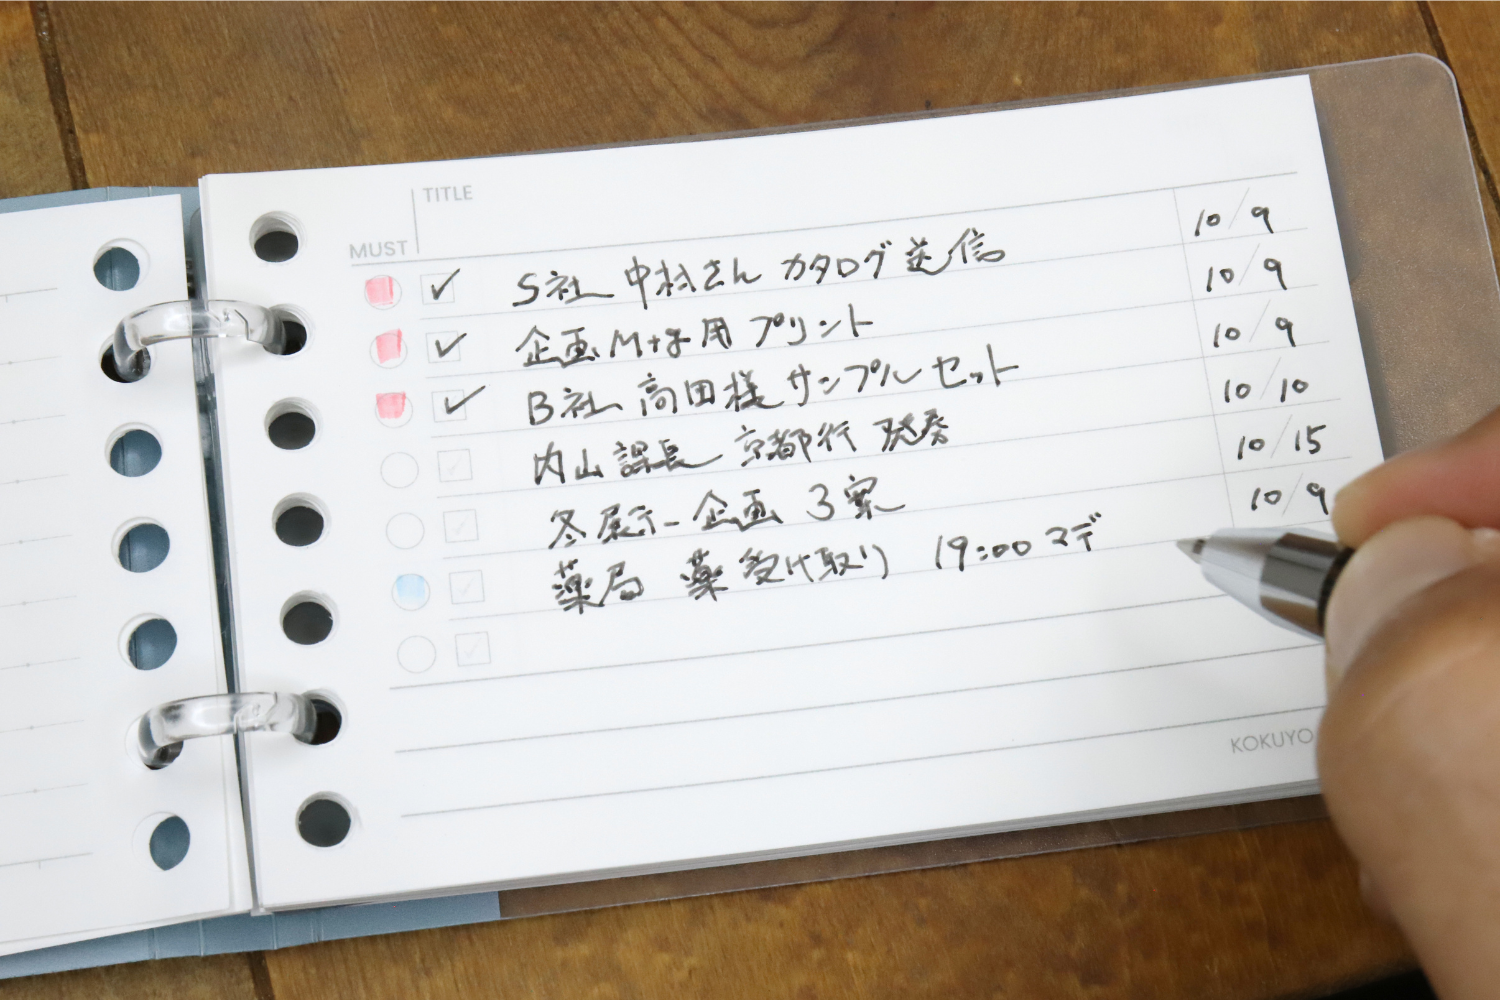 TITLE
MUST
S社 中村さん カタログ送信 10/9
企画Mtg用 プリント 10/9
B社 高田様 サンプルセット 10/9
内山課長 京都行 発券 10/10
冬展示-企画 3案 10/15
薬局 薬受け取り 19:00マデ 10/9
KOKUYO